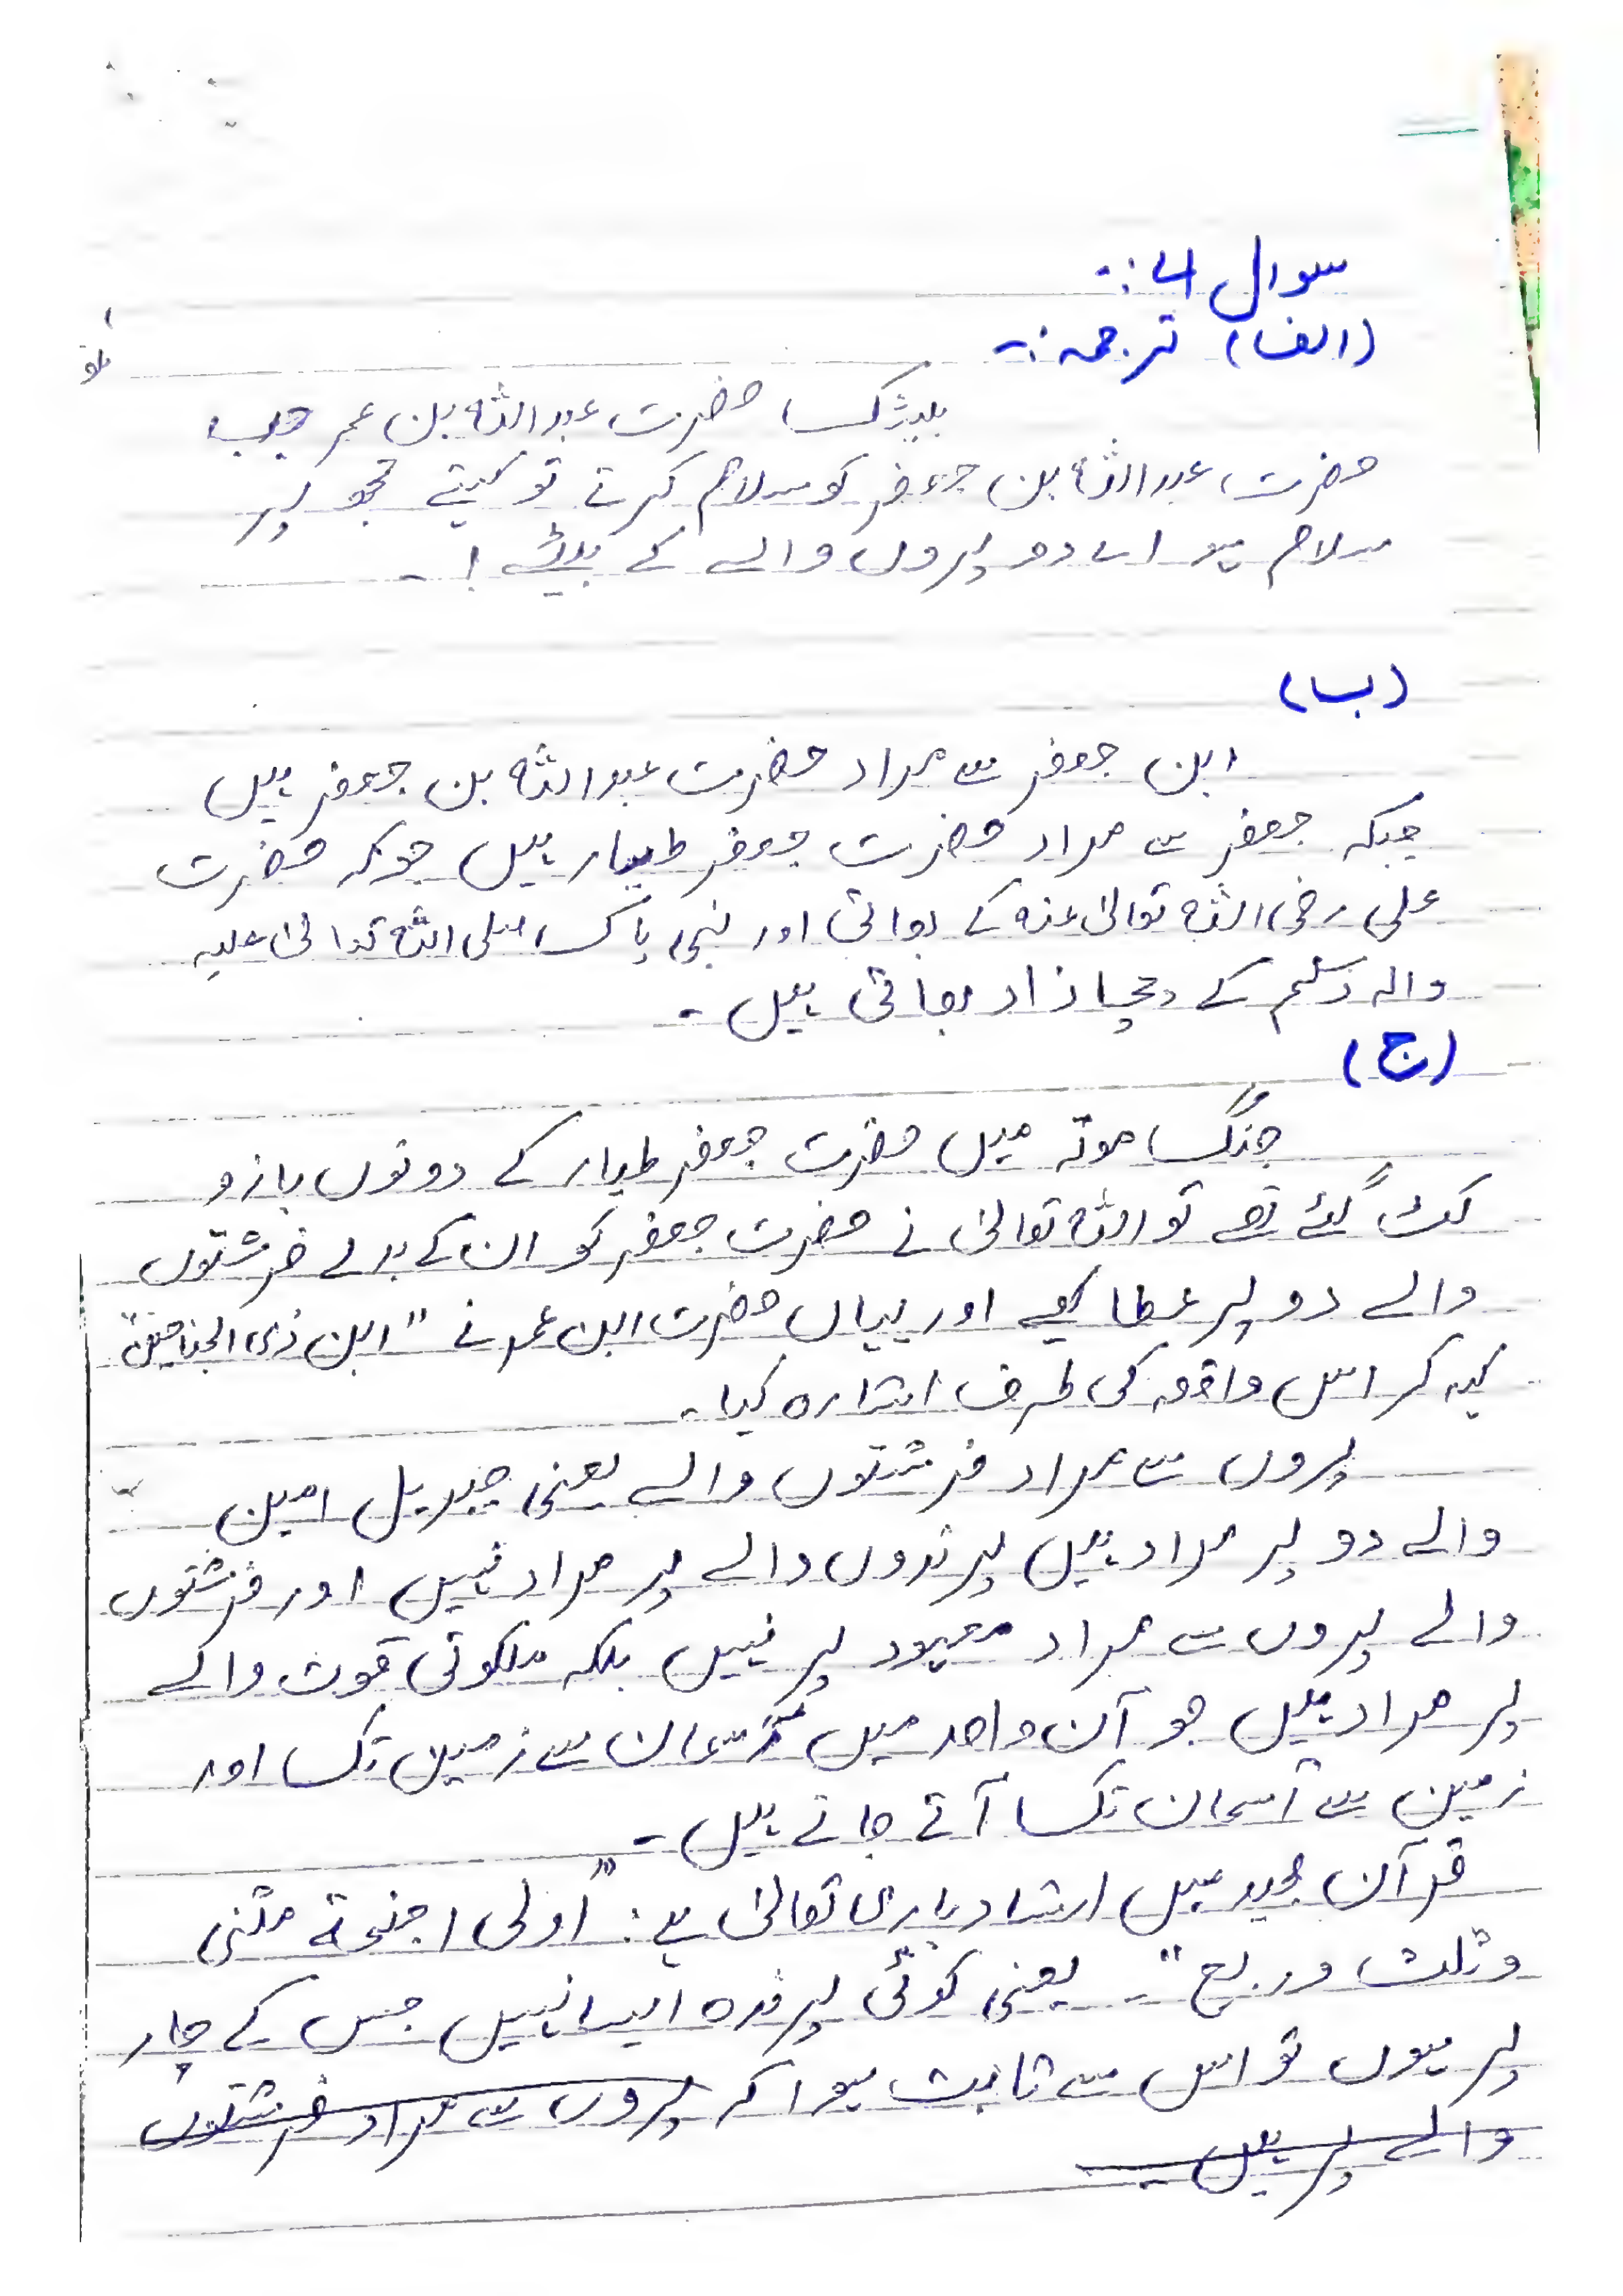 سوال 4:-
(الف) ترجمہ:-
بیشک حضرت عبداللہ بن عمر جب
حضرت عبداللہ بن جعفر کو سلام کرتے تو کہتے تجھ پر
سلام ہو اے دو پروں والے کے بیٹے!-
(ب)
ابن جعفر سے مراد حضرت عبداللہ بن جعفر ہیں
جبکہ جعفر سے مراد حضرت جعفر طیار ہیں جوکہ حضرت
علی رضی اللہ تعالیٰ عنہ کے بھائی اور نبی پاک صلی اللہ تعالیٰ علیہ
والہ وسلم کے چچا زاد بھائی ہیں۔
(ج)
جنگ موتہ میں حضرت جعفر طیار کے دونوں بازو
کٹ گئے تھے تو اللہ تعالیٰ نے حضرت جعفر کو ان کے بدلے فرشتوں
والے دو پر عطا کیے اور یہاں حضرت ابن عمر نے "ابن ذی الجناحین"
کہہ کر اس واقعہ کی طرف اشارہ کیا۔
پروں سے مراد فرشتوں والے یعنی جبریل امین
والے دو پر مراد ہیں پرندوں والے پر مراد نہیں اور فرشتوں
والے پروں سے مراد معہود پر نہیں بلکہ ملکوتی قوت والے
پر مراد ہیں جو آن واحد میں آسمان سے زمین تک اور
زمین سے آسمان تک آتے جاتے ہیں۔
قرآن مجید میں ارشاد باری تعالیٰ ہے: "اولی اجنحة مثنی
وثلث وربع"۔ یعنی کوئی پرندہ ایسا نہیں جس کے چار
پر ہوں تو اس سے ثابت ہوا کہ پروں سے مراد فرشتوں
والے پر ہیں۔